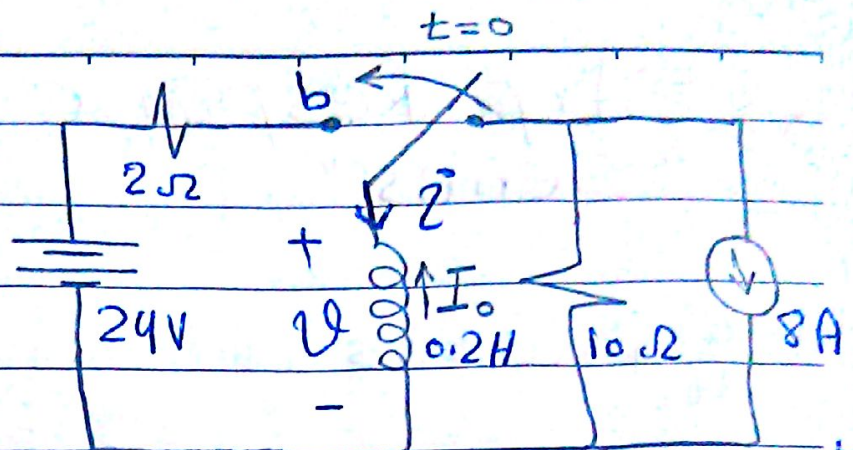 t=0
b
2Ω
i
+
24V
v
I₀
0.2H
10Ω
8A
-